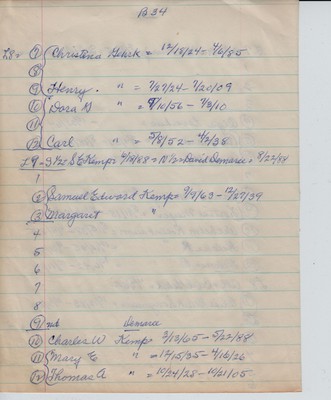 B 34
L8 = ⑦ Christina Houck = 12/18/24 - 4/6/85
⑧
⑨ Henry " = 7/27/24 - 7/20/09
⑩ Dora G " = 9/10/56 - 4/3/10
⑪
⑫ Carl " = 5/8/52 - 4/2/38
L9 - S 1/2 S E Kemp 4/18/88 = N 1/2 = David Demaree = 8/22/88
1
② Samuel Edward Kemp = 9/9/63 - 12/27/39
③ Margaret "
4
5
6
7
8
⑨ Demaree
⑩ Charles W Kemp = 2/13/65 - 5/22/88
⑪ Mary E " = 12/15/35 - 4/16/26
⑫ Thomas A " = 10/24/28 - 10/21/05